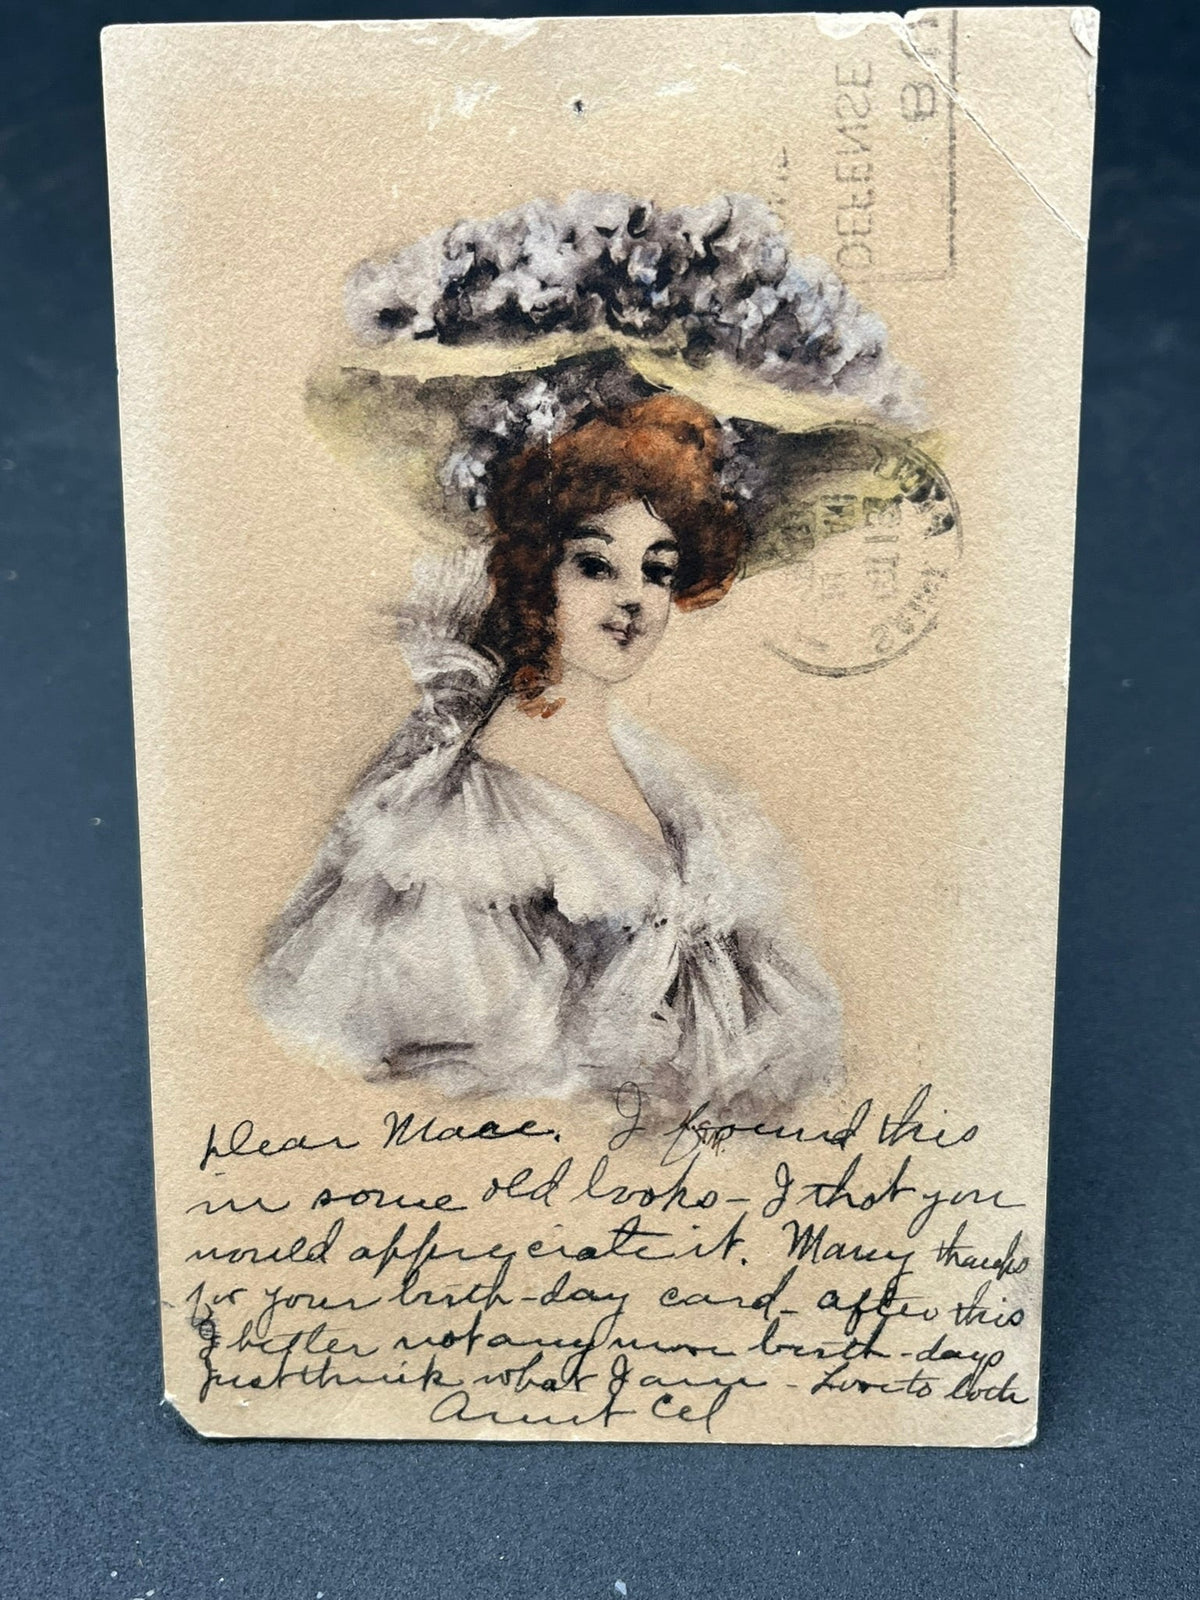 DEFENSE
Dear Mace. I found this
in some old books - I thot you
would appreciate it. Many thanks
for your birth-day card - after this
I better not any more birth-days
Just think what I am - Love to both
Aunt Cel